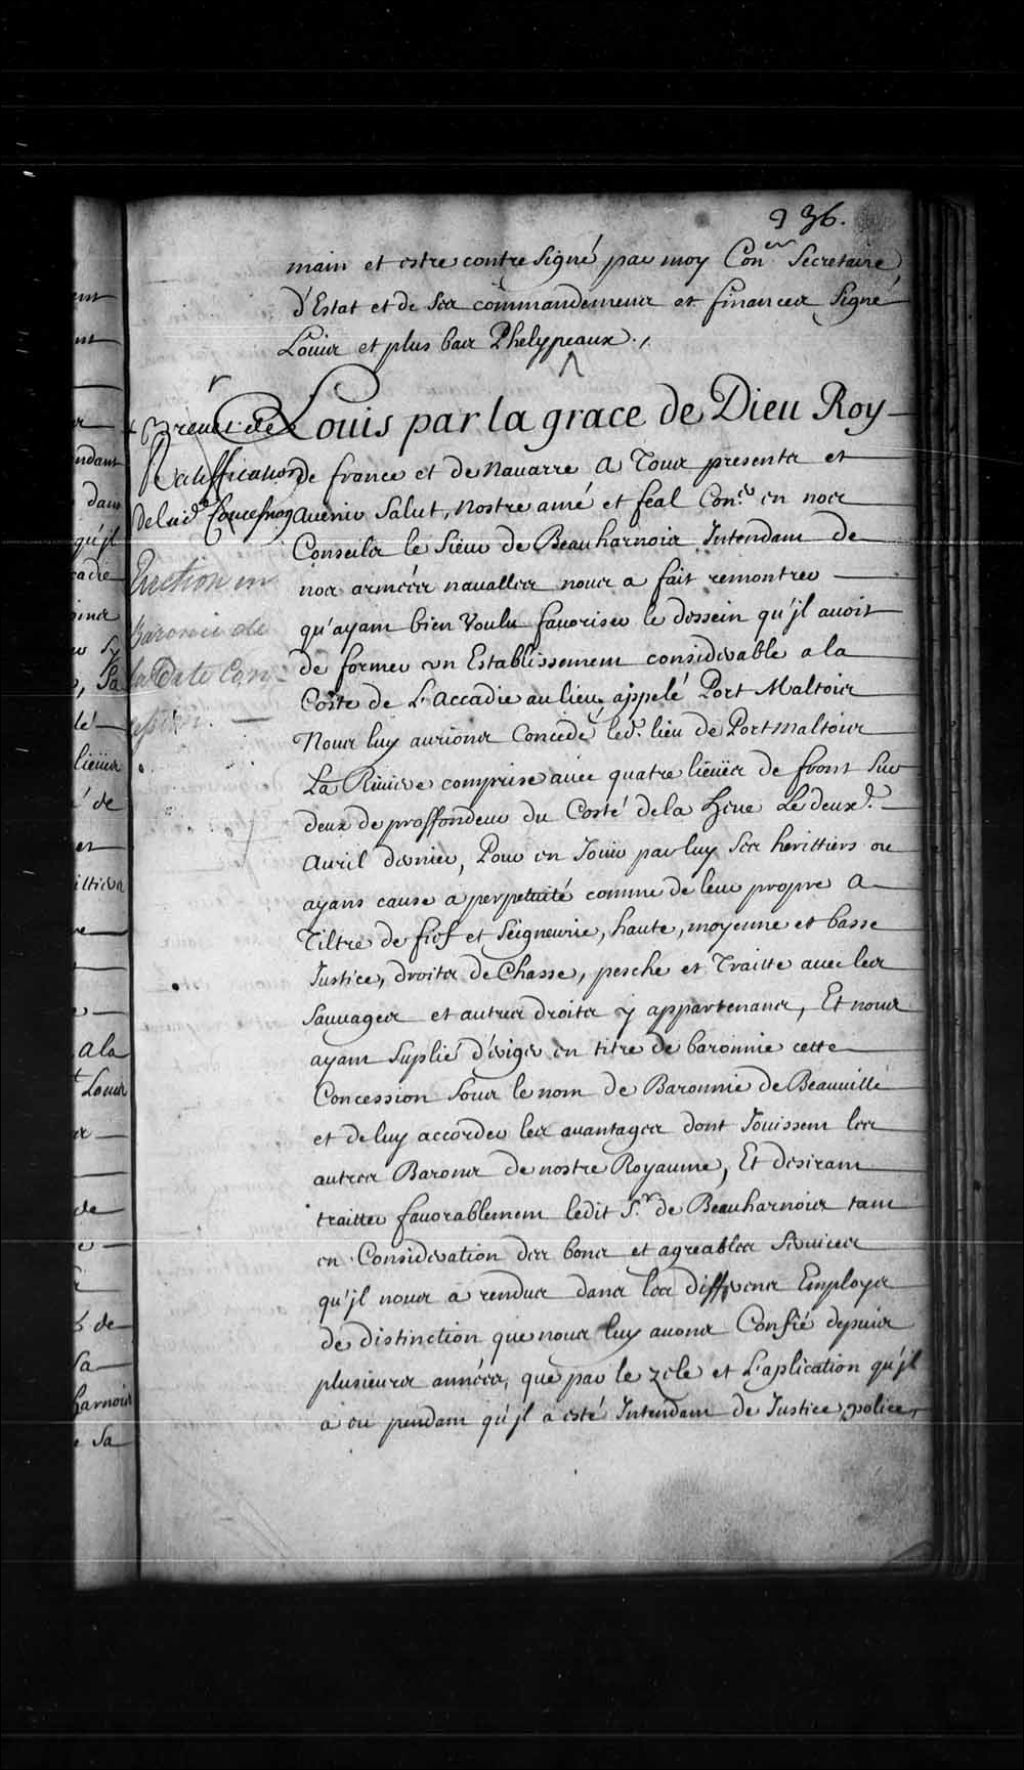 336.
main et estre contre signé par moy Con.er Secretaire
d'Estat et de ses commandemens et finances Signé
Louis et plus bas Phelypeaux ./.
Louis par la grace de Dieu Roy
de france et de Nauarre A Tous presents et
auenir Salut, Nostre amé et feal Con.er en nos
Conseils le Sieur de Beauharnois Intendant de
nos armées naualles nous a fait remontrer
qu'ayant bien Voulu fauoriser le dessein qu'jl auoit
de former un Establissement considerable a la
Coste de L'accadie au lieu appelé Port Maltois
Nous luy aurions Concedé led. lieu de Port maltois
La Riuiere comprise auec quatre lieües de front Sur
deux de proffondeur du Costé de la Heue Le deux.e
Auril dernier, Pour en Jouir par luy Ses herittiers ou
ayans cause a perpetuité comme de leur propre A
Tiltre de fief et Seigneurie, haute, moyenne et basse
Justice, droits de Chasse, pesche et Traitte auec les
Sauuages et autres droits y appartenans, Et nous
ayant Suplié d'eriger en titre de baronnie cette
Concession Sous le nom de Baronnie de Beauuille
et de luy accorder les auantages dont Jouissent les
autres Barons de nostre Royaume, Et desirant
traitter fauorablement ledit S.r de Beauharnois tant
en Consideration des bons et agreables Seruices
qu'jl nous a rendus dans les differens Employs
de distinction que nous luy auons Confié depuis
plusieurs années, que par le zele et L'aplication qu'jl
a eu pendant qu'jl a esté Intendant de Justice, police,
+ Breuet de
Ratiffication
de lad.e Concession
Erection en
Baronie de
la Dite Con-
cession.
ent
nt
ndant
dans
qu'jl
cadie
lé
lieües
de
et
a la
Louis
de
de
sa
harnois
Sa